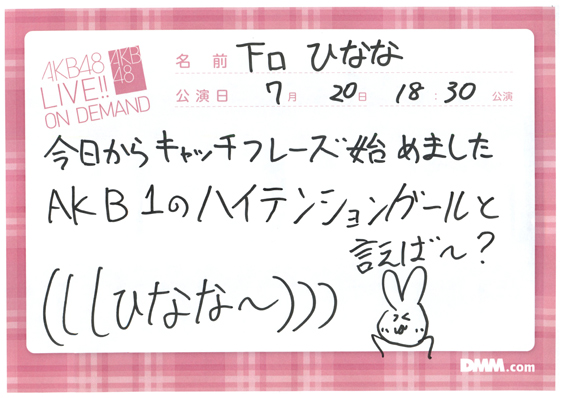 AKB48
LIVE!!
ON DEMAND
AKB
48
名前 下口 ひなな
公演日 7月 20日 18:30 公演
今日からキャッチフレーズ始めました
AKB1のハイテンションガールと
言えば〜?
(((ひなな〜)))
DMM.com